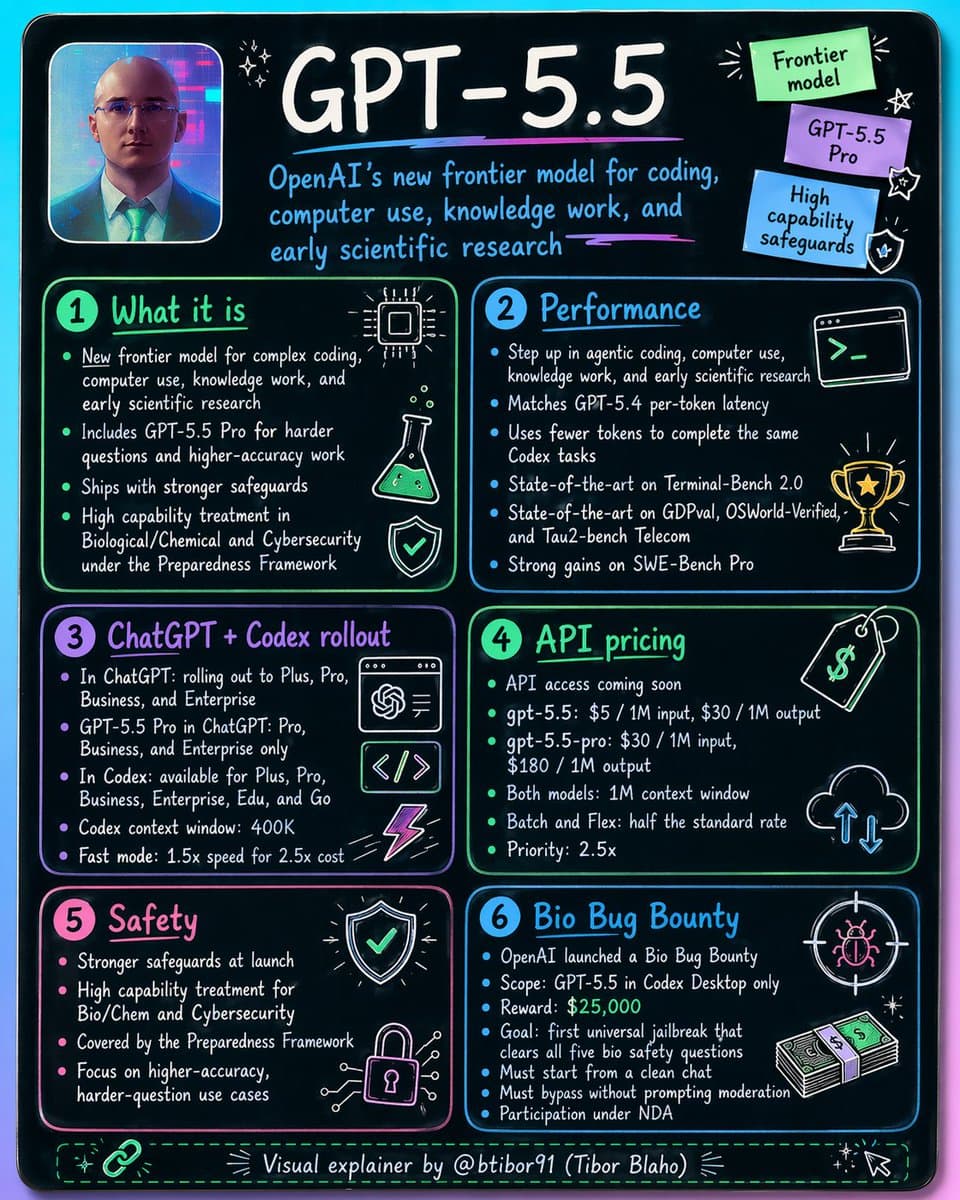 GPT-5.5
OpenAI's new frontier model for coding,
computer use, knowledge work, and
early scientific research
Frontier
model
GPT-5.5
Pro
High
capability
safeguards
1 What it is
• New frontier model for complex coding,
computer use, knowledge work, and
early scientific research
• Includes GPT-5.5 Pro for harder
questions and higher-accuracy work
• Ships with stronger safeguards
• High capability treatment in
Biological/Chemical and Cybersecurity
under the Preparedness Framework
2 Performance
>_
• Step up in agentic coding, computer use,
knowledge work, and early scientific research
• Matches GPT-5.4 per-token latency
• Uses fewer tokens to complete the same
Codex tasks
• State-of-the-art on Terminal-Bench 2.0
• State-of-the-art on GDPval, OSWorld-Verified,
and Tau2-bench Telecom
• Strong gains on SWE-Bench Pro
3 ChatGPT + Codex rollout
• In ChatGPT: rolling out to Plus, Pro,
Business, and Enterprise
• GPT-5.5 Pro in ChatGPT: Pro,
Business, and Enterprise only
• In Codex: available for Plus, Pro,
Business, Enterprise, Edu, and Go
• Codex context window: 400K
• Fast mode: 1.5x speed for 2.5x cost
</>
4 API pricing
$
• API access coming soon
• gpt-5.5: $5 / 1M input, $30 / 1M output
• gpt-5.5-pro: $30 / 1M input,
$180 / 1M output
• Both models: 1M context window
• Batch and Flex: half the standard rate
• Priority: 2.5x
5 Safety
• Stronger safeguards at launch
• High capability treatment for
Bio/Chem and Cybersecurity
• Covered by the Preparedness Framework
• Focus on higher-accuracy,
harder-question use cases
6 Bio Bug Bounty
• OpenAI launched a Bio Bug Bounty
• Scope: GPT-5.5 in Codex Desktop only
• Reward: $25,000
• Goal: first universal jailbreak that
clears all five bio safety questions
• Must start from a clean chat
• Must bypass without prompting moderation
• Participation under NDA
Visual explainer by @btibor91 (Tibor Blaho)